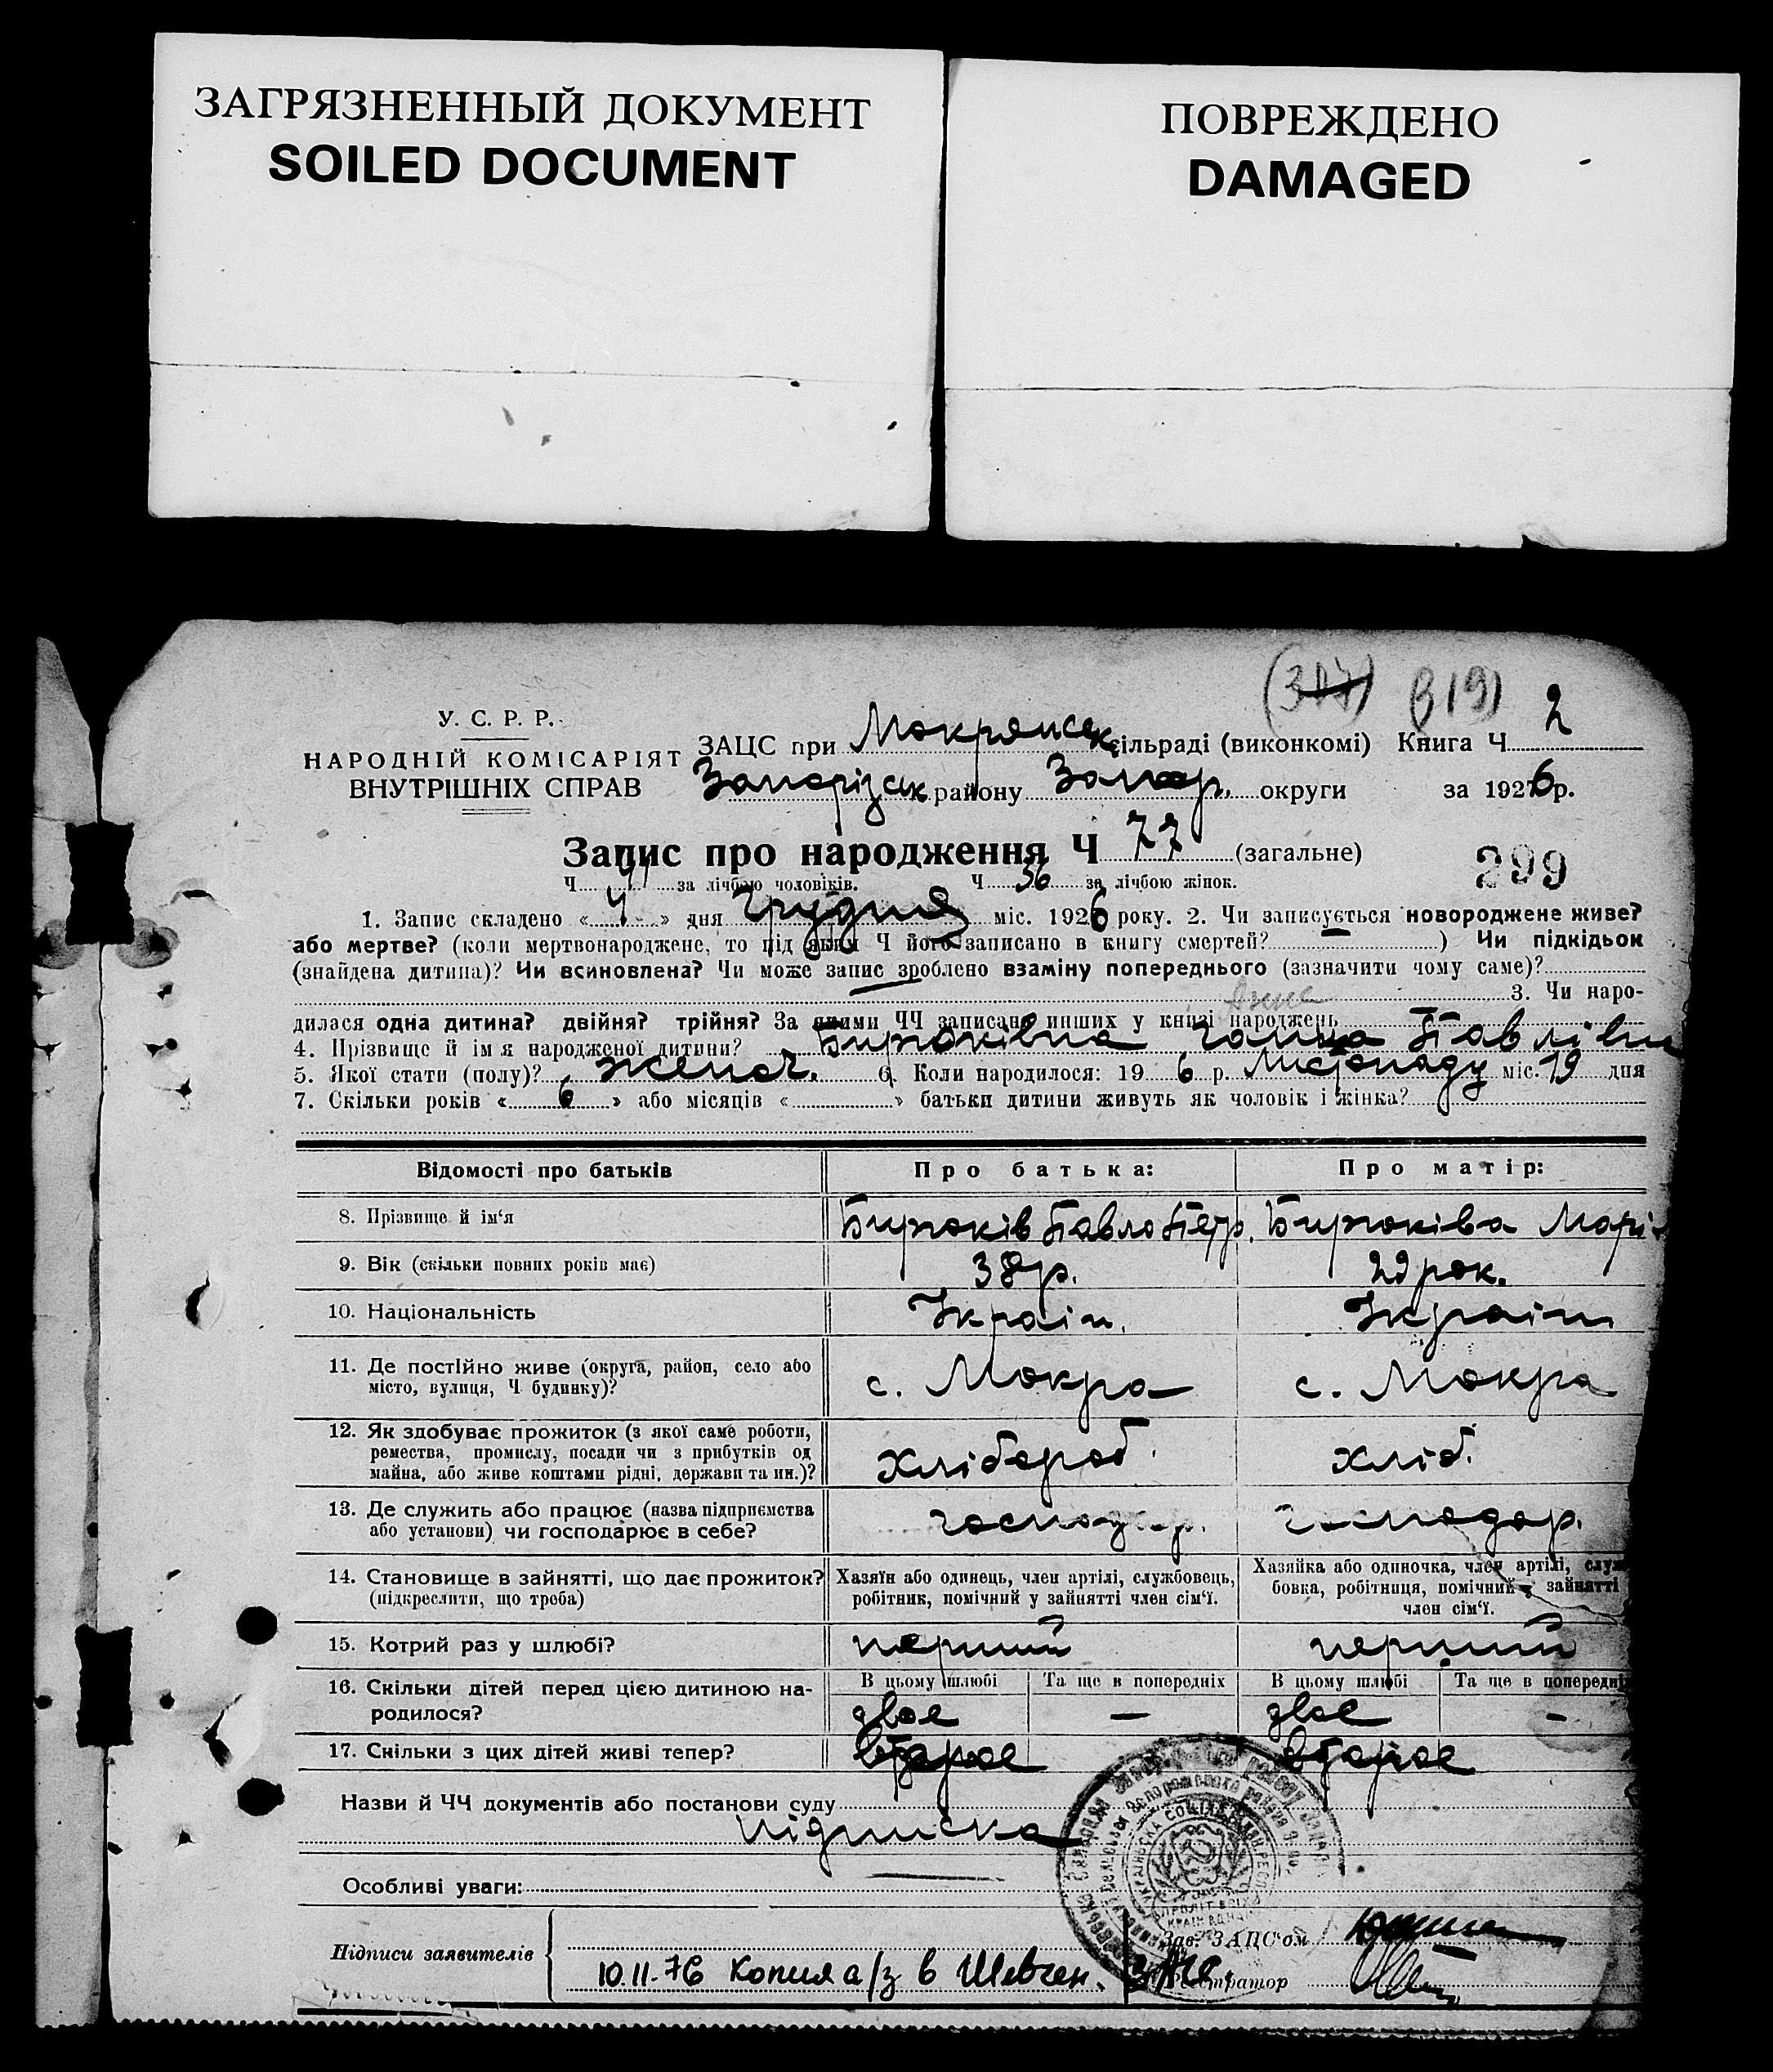 ЗАГРЯЗНЕННЫЙ ДОКУМЕНТ
SOILED DOCUMENT
ПОВРЕЖДЕНО
DAMAGED
(317) (319)
У. С. Р. Р.
НАРОДНІЙ КОМІСАРІЯТ
ВНУТРІШНІХ СПРАВ
ЗАЦС при Мокрянск сільраді (виконкомі) Книга Ч. 2
Запорізьк району Запор. округи за 1926 р.
Запис про народження Ч 77 (загальне)
299
Ч. 41 за лічбою чоловіків. Ч. 36 за лічбою жінок.
1. Запис складено « 4 » дня Грудня міс. 1926 року. 2. Чи записується новороджене живе?
або мертве? (коли мертвонароджене, то під яким Ч його записано в книгу смертей? ) Чи підкідьок
(знайдена дитина)? Чи всиновлена? Чи може запис зроблено взаміну попереднього (зазначити чому саме)?
3. Чи наро-
дилася одна дитина? двійня? трійня? За якими ЧЧ записано инших у книзі народжень
4. Прізвище й імя народженої дитини? Бирюківна Ганна Павлівн
5. Якої стати (полу)? женоч. 6. Коли народилося: 19 6 р. Листопаду міс. 19 дня
7. Скільки років « 6 » або місяців « » батьки дитини живуть як чоловік і жінка?
Відомості про батьків Про батька: Про матір:
8. Прізвище й ім‘я Бирюків Павло Петр. Бирюківа Марія
9. Вік (скільки повних років має) 38 р. 29 рок.
10. Національність Україн. Україн
11. Де постійно живе (округа, район, село або
місто, вулиця, Ч будинку)? с. Мокра с. Мокра
12. Як здобуває прожиток (з якої саме роботи,
ремества, промислу, посади чи з прибутків од
майна, або живе коштами рідні, держави та ин.)? хлібороб. хліб.
13. Де служить або працює (назва підприємства
або установи) чи господарює в себе? господар. господар.
14. Становище в зайнятті, що дає прожиток?
(підкреслити, що треба)
Хазяїн або одинець, член артілі, службовець,
робітник, помічний у зайнятті член сім‘ї.
Хазяйка або одиночка, член артілі, служ
бовка, робітниця, помічний у зайнятті
член сім‘ї.
15. Котрий раз у шлюбі? перший перший
16. Скільки дітей перед цією дитиною на-
родилося?
В цьому шлюбі Та ще в попередніх В цьому шлюбі Та ще в попередні
двое — двое —
17. Скільки з цих дітей живі тепер?
Назви й ЧЧ документів або постанови суду
підписка
Особливі уваги:
Підписи заявителів
Зав. ЗАЦС‘ом
Реєстратор
10.II.76 Копия а/з в Шевчен. ЗАГС.